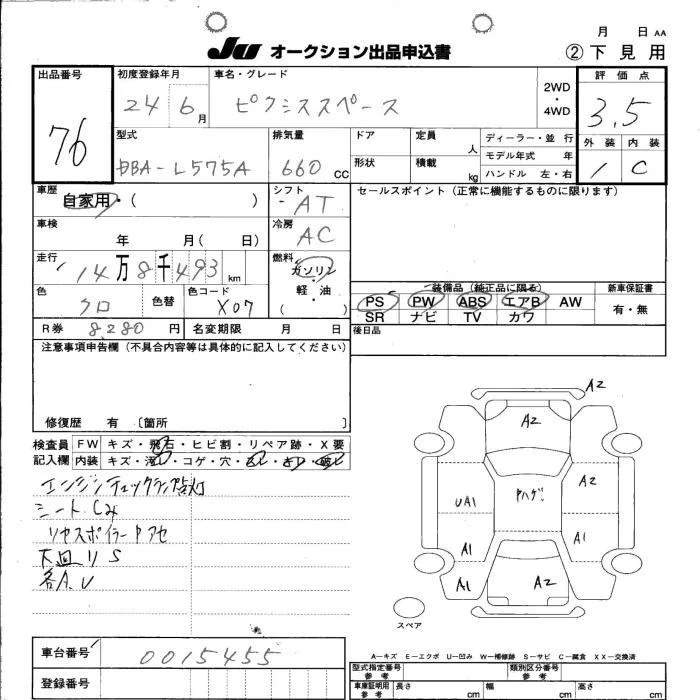 月 日 AA
JU オークション出品申込書 ② 下見用
出品番号 76
初度登録年月 24 6月
車名・グレード ピクシススペース
2WD・4WD
評価点 3.5
外装 1 内装 C
型式 DBA-L575A
排気量 660 CC
ドア 形状
定員 人
積載 kg
ディーラー・並行
モデル年式 年
ハンドル 左・右
車歴 自家用・( )
シフト AT
セールスポイント(正常に機能するものに限ります)
車検 年 月( 日)
冷房 AC
走行 14万8千493 km
燃料 ガソリン 軽・油 ( )
色 クロ 色替
色コード X07
装備品(純正品に限る)
PS PW ABS エアB AW
SR ナビ TV カワ
新車保証書 有・無
R券 8280円 名変期限 月 日
後日品
注意事項申告欄(不具合内容等は具体的に記入してください)
修復歴 有 〔箇所 〕
検査員記入欄
FW キズ・飛石・ヒビ割・リペア跡・X要
内装 キズ・汚レ・コゲ・穴・
エンジンチェックランプ点灯
シート Cみ
リヤスポイラーPアセ
下回リS
各A.U
A2
A2
A2
UA1
Pハゲ
A1
A1
A1
A2
スペア
A―キズ E―エクボ U―凹み W―補修跡 S―サビ C―腐食 XX―交換済
車台番号 0015455
登録番号
型式指定番号 参考
類別区分番号 参考
車庫証明用 参考 長さ cm 幅 cm 高さ cm